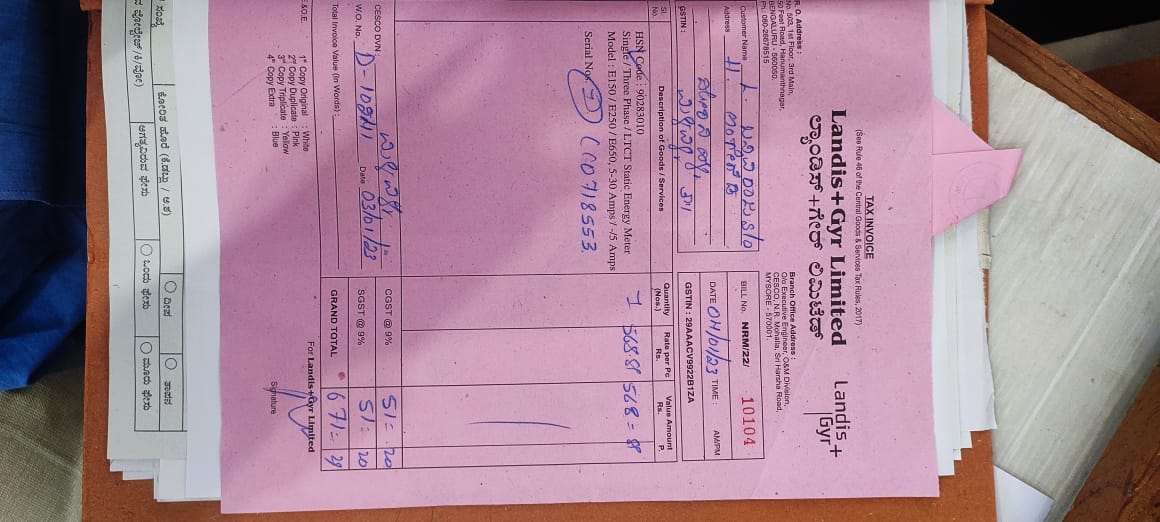 TAX INVOICE
(See Rule 46 of the Central Goods & Services Tax Rules, 2017)
Landis+Gyr Limited
ಲ್ಯಾಂಡಿಸ್+ಗೇರ್ ಲಿಮಿಟೆಡ್
Landis+
Gyr+
R. O. Address :
No. 803, 1st Floor, 3rd Main,
50 Feet Road, Hanumanthnagar,
BENGALURU - 560050.
Ph: 080-26678515
Branch Office Address :
O/o Executive Engineer, O&M Division,
CESCO, N.R. Mohalla, Sri Harsha Road,
MYSORE - 570001.
Customer Name
Address
GSTIN :
BILL No. NRM/22/ 10104
DATE 04/01/23 TIME : AM/PM
GSTIN : 29AAACV9922B1ZA
Sl. No.
Description of Goods / Services
Quantity (Nos.)
Rate per Pc Rs.
Value Amount
Rs. P.
HSN Code : 90283010
Single / Three Phase / LTCT Static Energy Meter
Model : E150 / E250 / E650, 5-30 Amps / -/5 Amps
Serial No. (CC0718553
1 568.89 568=89
CESCO DVN :
W.O. No. Date 03/01/23
CGST @ 9% 51= 20
SGST @ 9% 51= 20
Total Invoice Value (In Words) :
GRAND TOTAL 671= 29
E.&O.E.
1st Copy Original : White
2nd Copy Duplicate : Pink
3rd Copy Triplicate : Yellow
4th Copy Extra : Blue
For Landis+Gyr Limited
Signature
ಕೋರಿತ ಹೊರೆ
ದೀಪ
ತಾಪನ
ಒಂದು ಫೇಸು
ಮೂರು ಫೇಸು